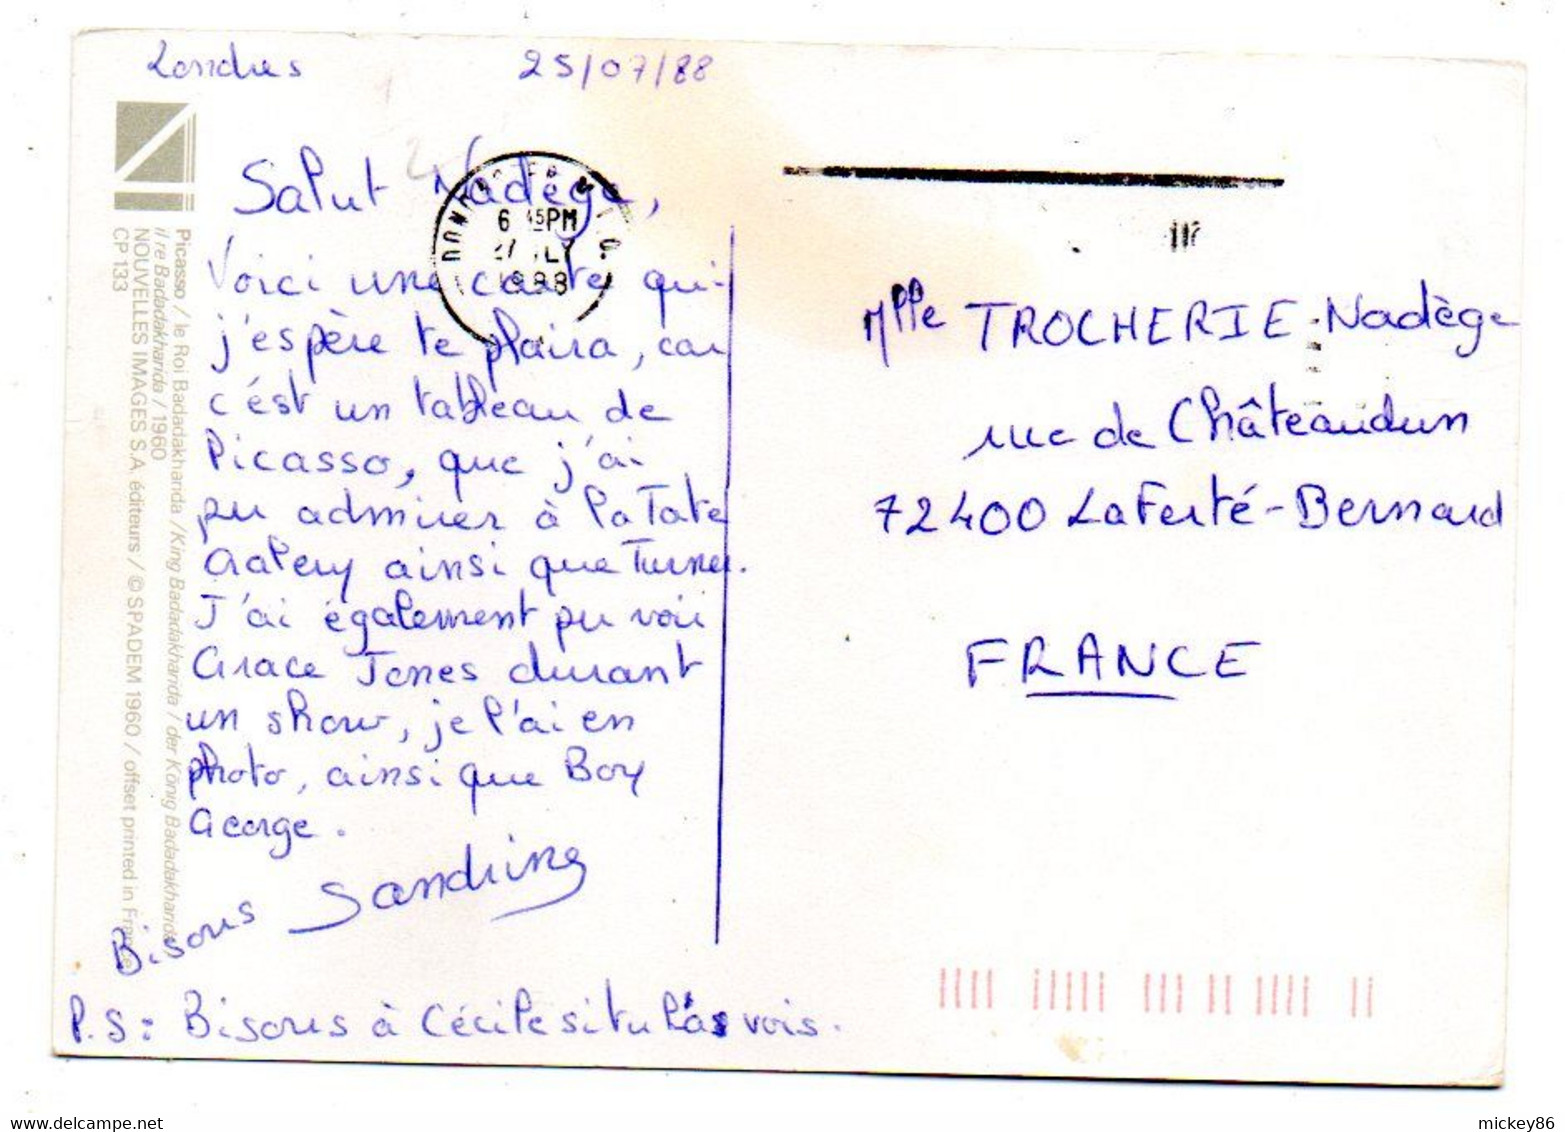 Londres 25/07/88
Salut Nadège,
Voici une carte qui
j'espère te plaira, car
c'est un tableau de
Picasso, que j'ai
pu admirer à la Tate
Galery ainsi que Turner.
J'ai également pu voir
Grace Jones durant
un show, je l'ai en
photo, ainsi que Boy
George.
Bisous Sandrine
P.S: Bisous à Cécile si tu la vois.
Picasso / le Roi Badadakhanda / King Badadakhanda / der König Badadakhanda
il re Badadakhanda / 1960
NOUVELLES IMAGES S.A. éditeurs / © SPADEM 1960 / offset printed in France
CP 133
6 45PM
1988
Mlle TROCHERIE Nadège
rue de Châteaudun
72400 La Ferté-Bernard
FRANCE
mickey86